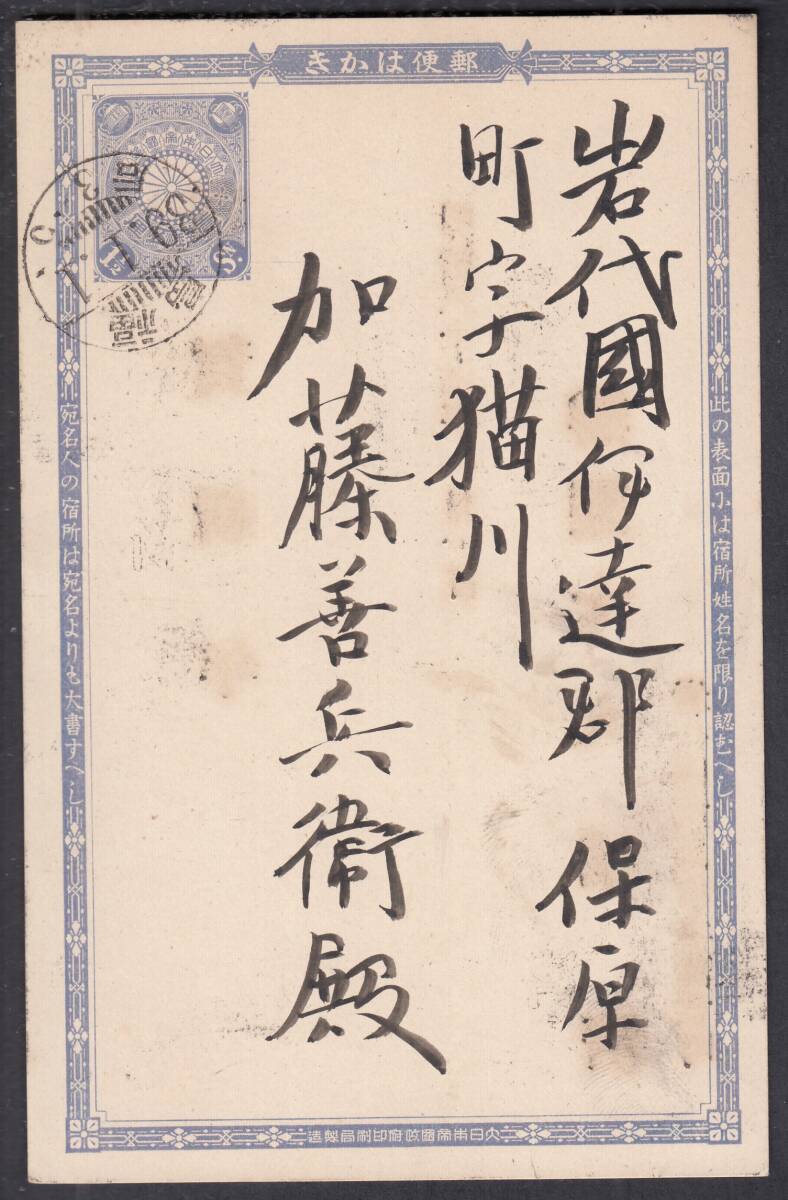 郵便はかき
岩代國伊達郡保原
町字猫川
加藤善兵衛殿
此の表面には宿所姓名を限り認むへし
宛名人の宿所は宛名よりも大書すへし
1½ Sn.
39.1.1
大日本帝國政府印刷局製造